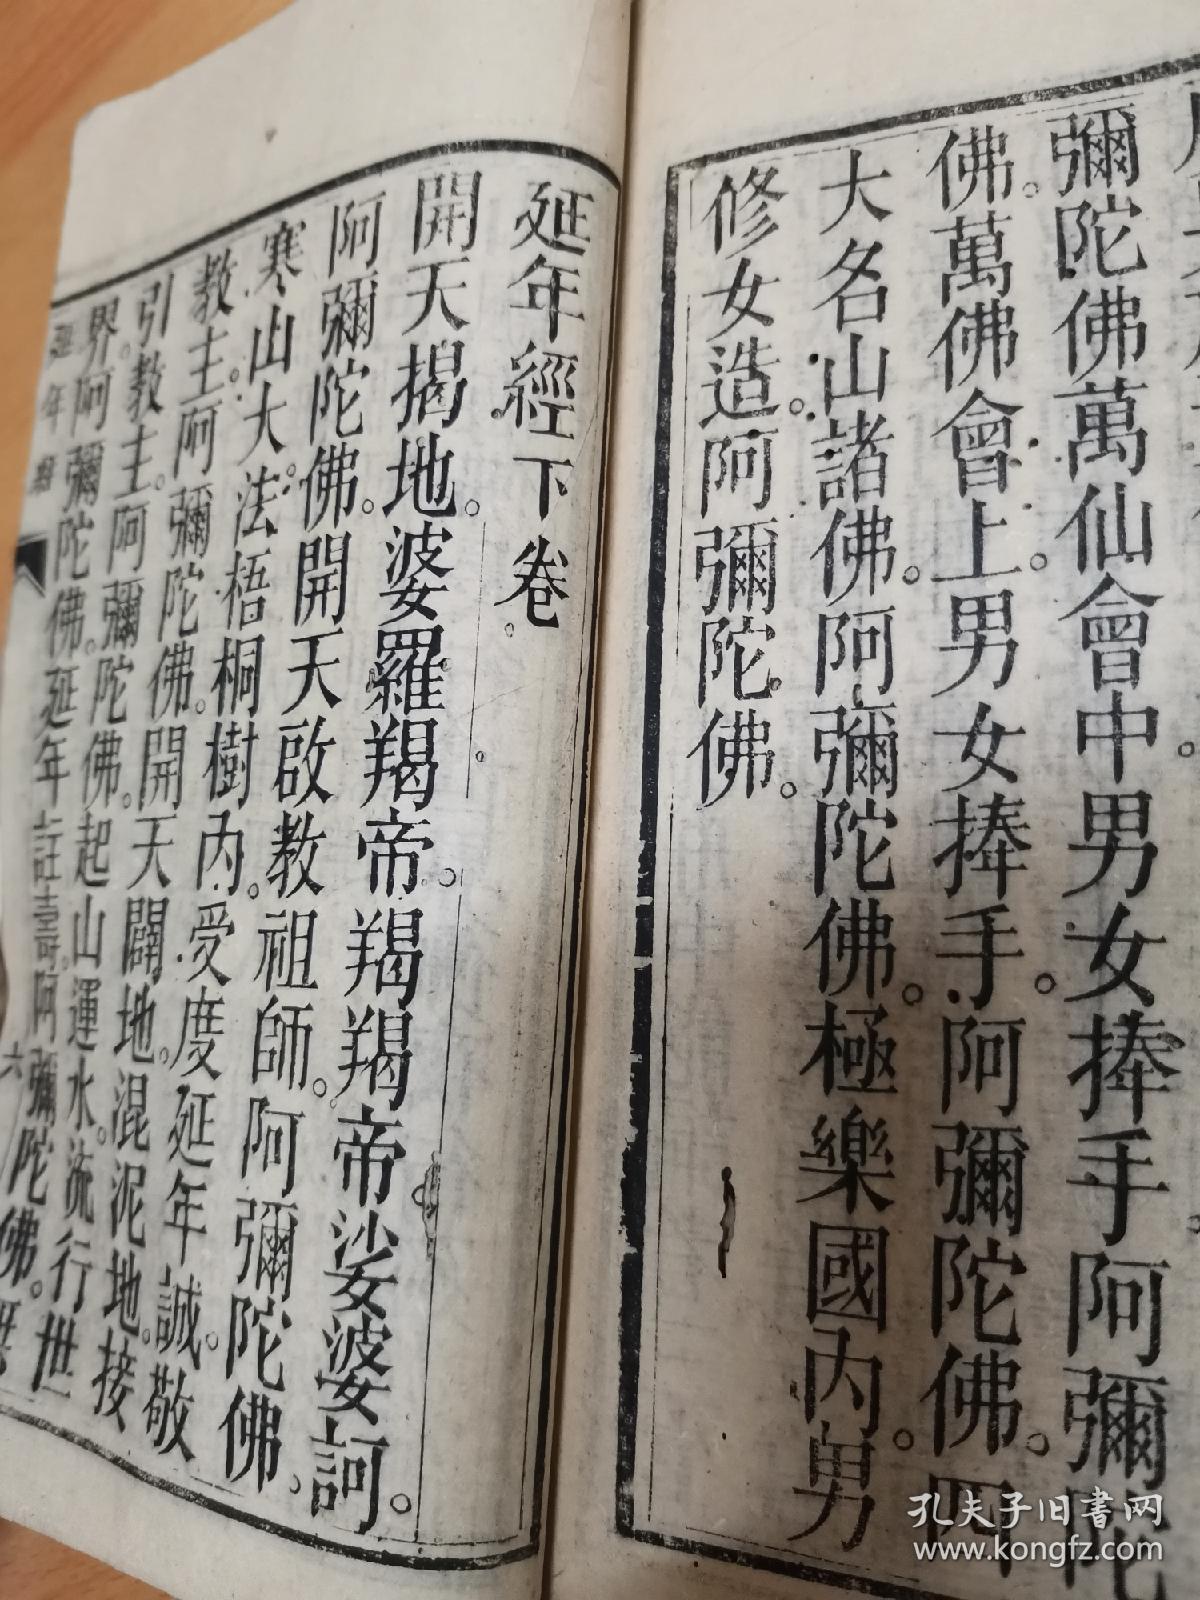 彌陀佛萬仙會中男女捧手阿彌陀
佛。萬佛會上男女捧手。阿彌陀佛。四
大名山諸佛。阿彌陀佛。極樂國內。男
修女造。阿彌陀佛。
延年經下卷。
開天揭地。婆羅羯帝。羯羯帝娑婆訶。
阿彌陀佛。開天啟教祖師。阿彌陀佛。
寒山大法。梧桐樹內。受度延年。誠敬
教主。阿彌陀佛。開天闢地。混泥地。接
引教主。阿彌陀佛。起山運水。流行世
界。阿彌陀佛。延年註壽。阿彌陀佛。
延年經
六
孔夫子旧書网
www.kongfz.com